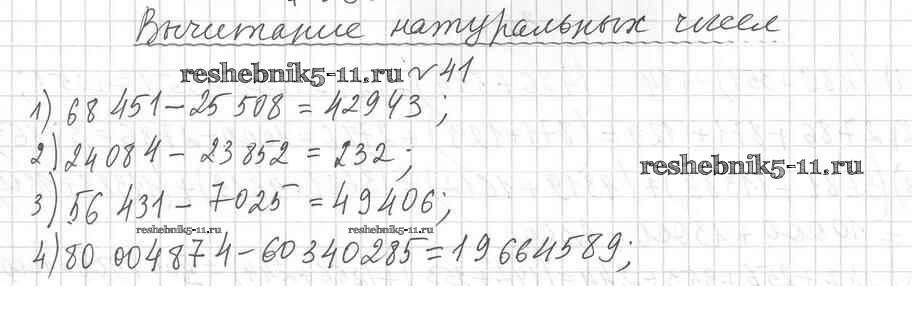 Вычитание натуральных чисел
reshebnik5-11.ru №41
1) 68 451 - 25 508 = 42943;
2) 24084 - 23852 = 232;
reshebnik5-11.ru
3) 56 431 - 7025 = 49406;
reshebnik5-11.ru reshebnik5-11.ru
4) 80 004874 - 60340285 = 19664589;